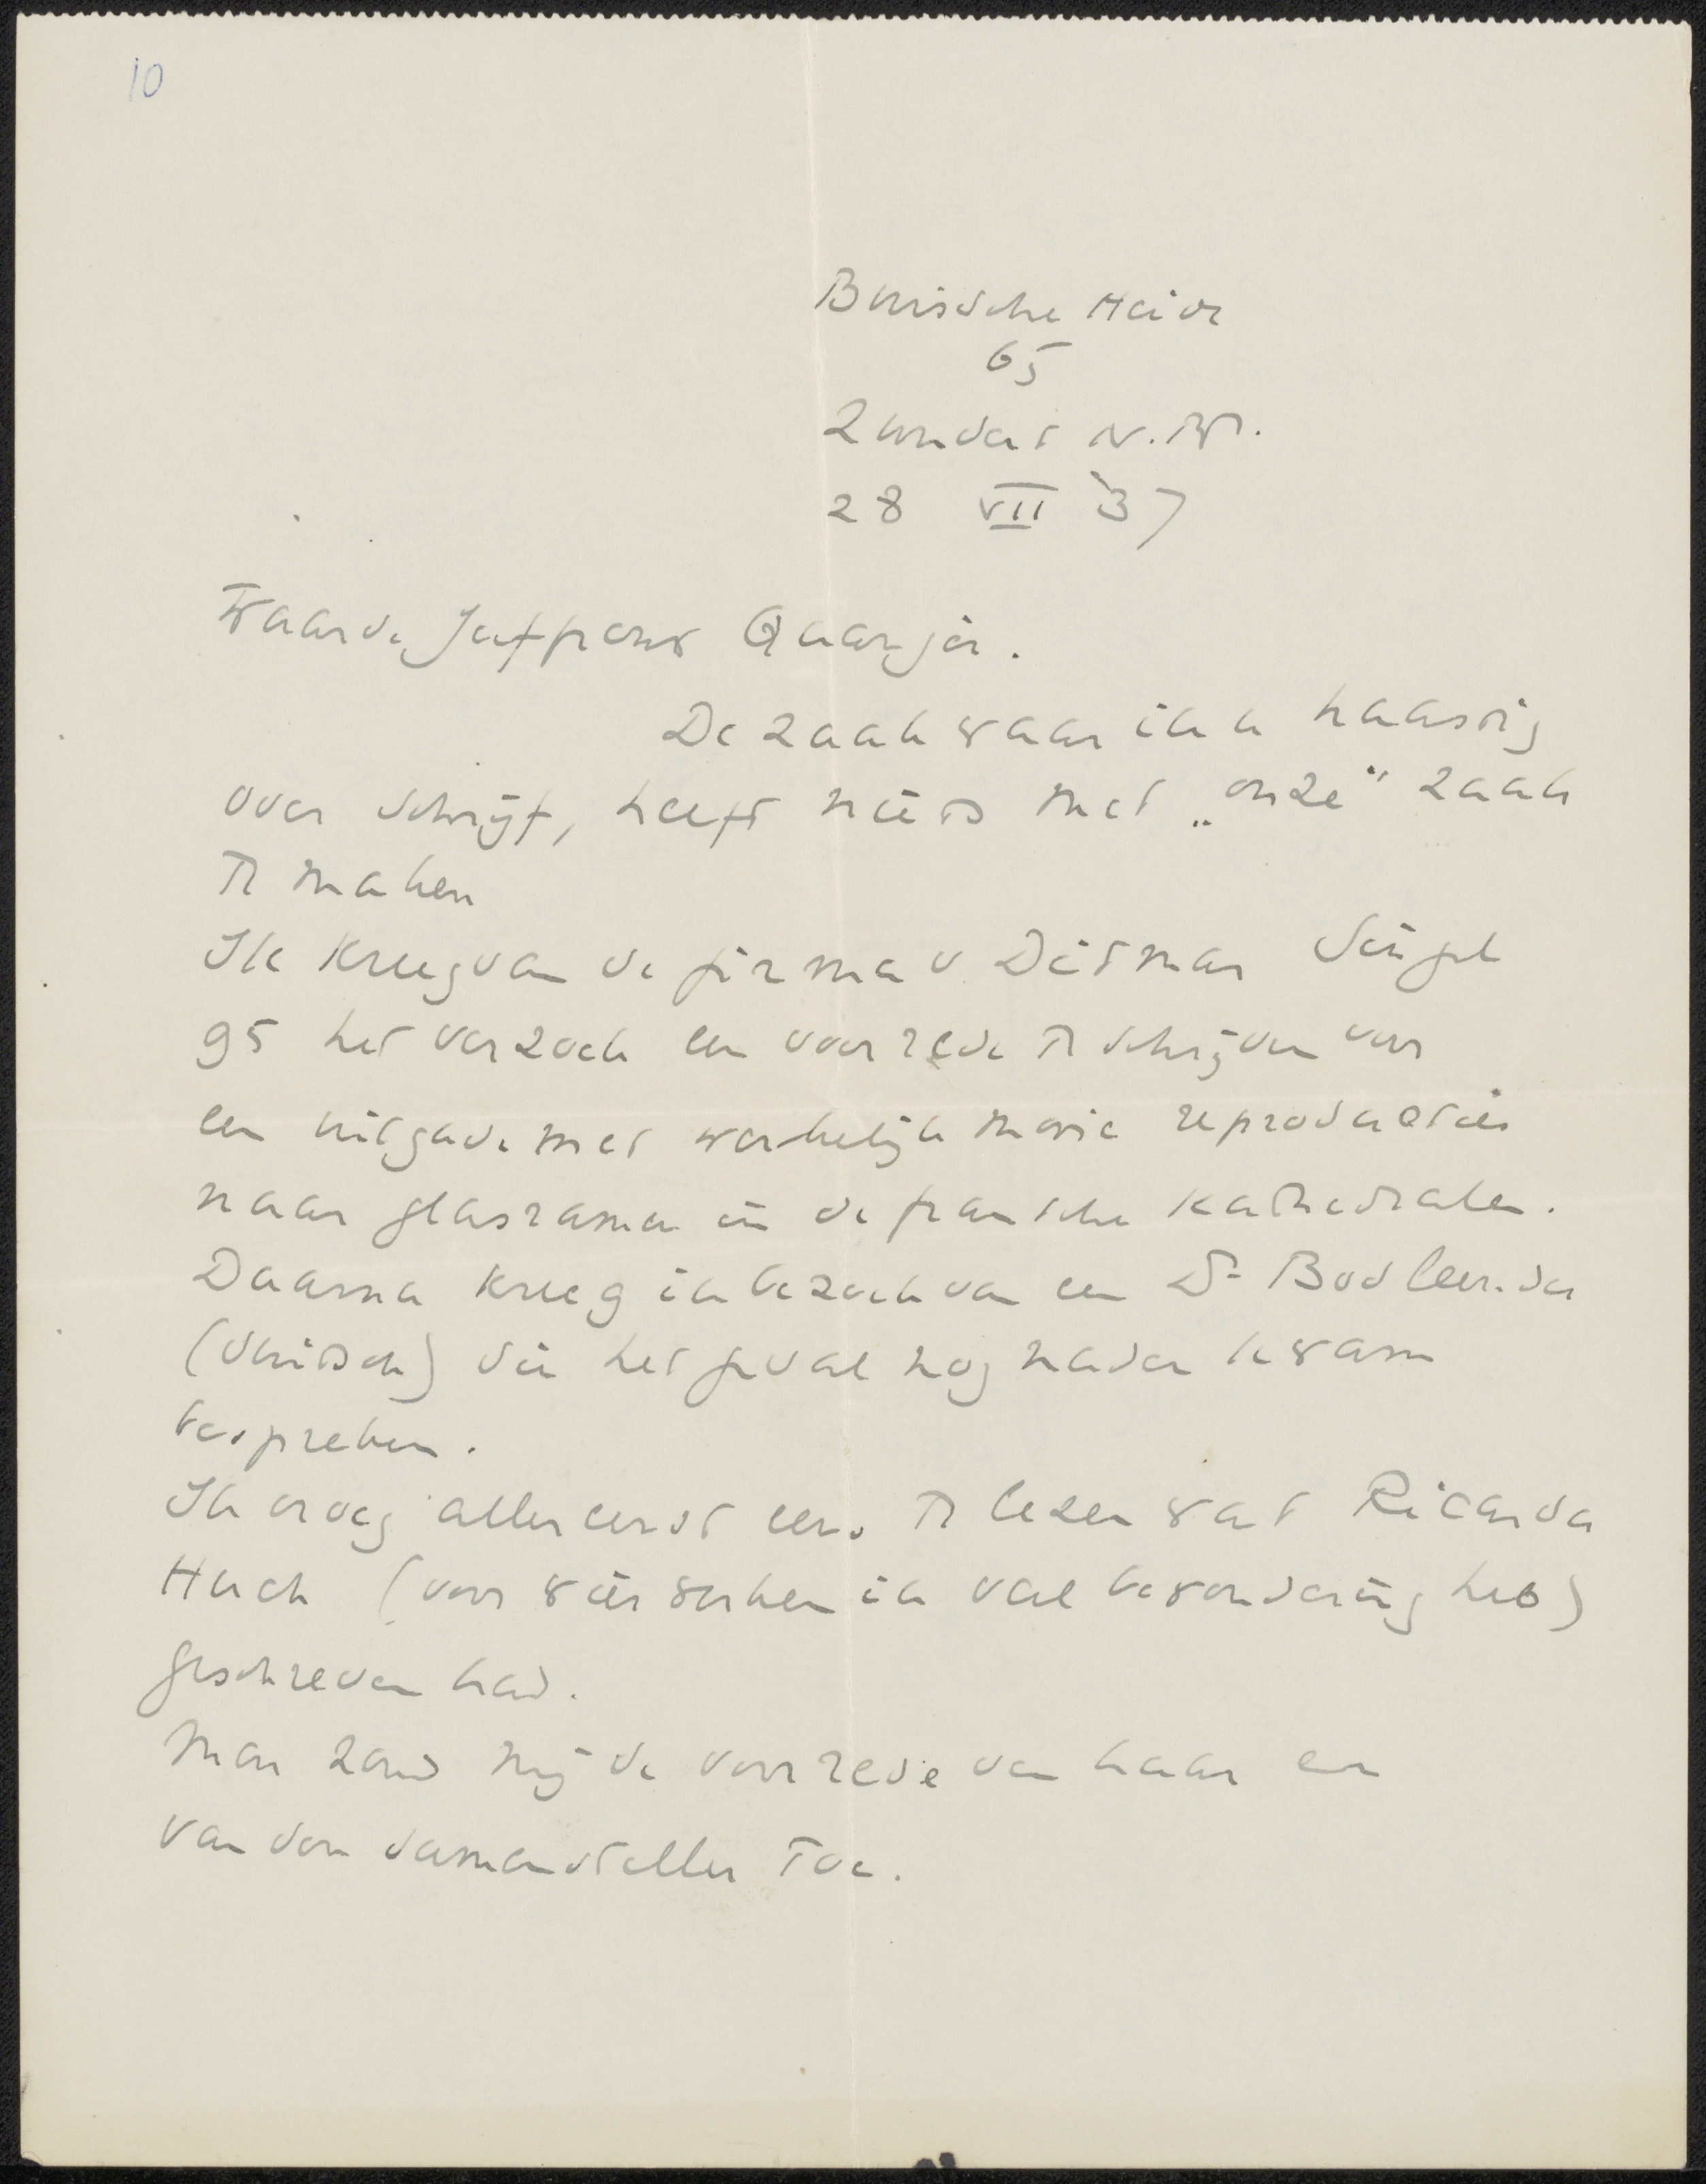 10
Buissche Heide
65
Zundert N.Br.
28 VII '37
Waarde Juffrouw Gaarjer.
De zaak waar ik u haastig
over schrijf, heeft niets met „onze" zaak
te maken
Ik kreeg van de firma v Ditmar Singel
95 het verzoek een voorrede te schrijven voor
een uitgave met werkelijk mooie reproducties
naar glasramen in de fransche Kathedralen.
Daarna kreeg ik bezoek van een Dr Bodlender
(duitsch) die het geval nog nader kwam
bespreken.
Ik vroeg allereerst eens te lezen wat Ricarda
Huch (voor wier werken ik veel bewondering heb)
geschreven had.
Men zond mij de voorrede van haar en
van den samensteller toe.